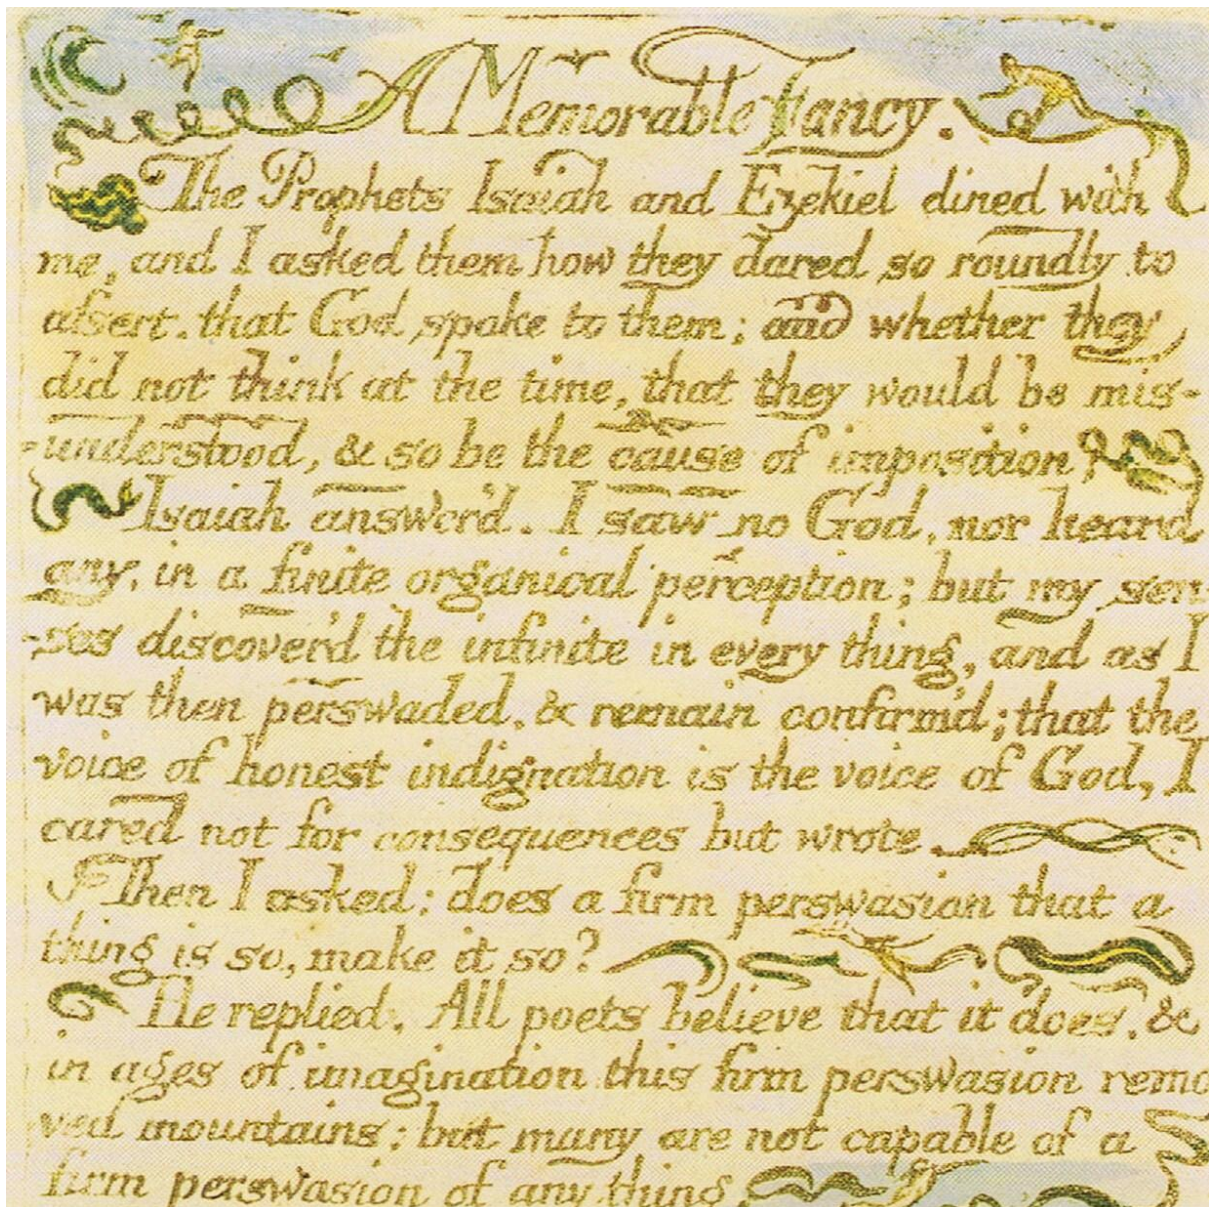 A Memorable Fancy.
The Prophets Isaiah and Ezekiel dined with
me, and I asked them how they dared so roundly to
aſsert. that God spoke to them; and whether they
did not think at the time, that they would be mis-
-understood, & so be the cause of imposition.
Isaiah answer'd. I saw no God, nor heard
any, in a finite organical perception; but my sen-
-ses discover'd the infinite in every thing, and as I
was then perswaded, & remain confirm'd; that the
voice of honest indignation is the voice of God, I
cared not for consequences but wrote.
Then I asked: does a firm perswasion that a
thing is so, make it so?
He replied. All poets believe that it does, &
in ages of imagination this firm perswasion remo
ved mountains; but many are not capable of a
firm perswasion of any thing